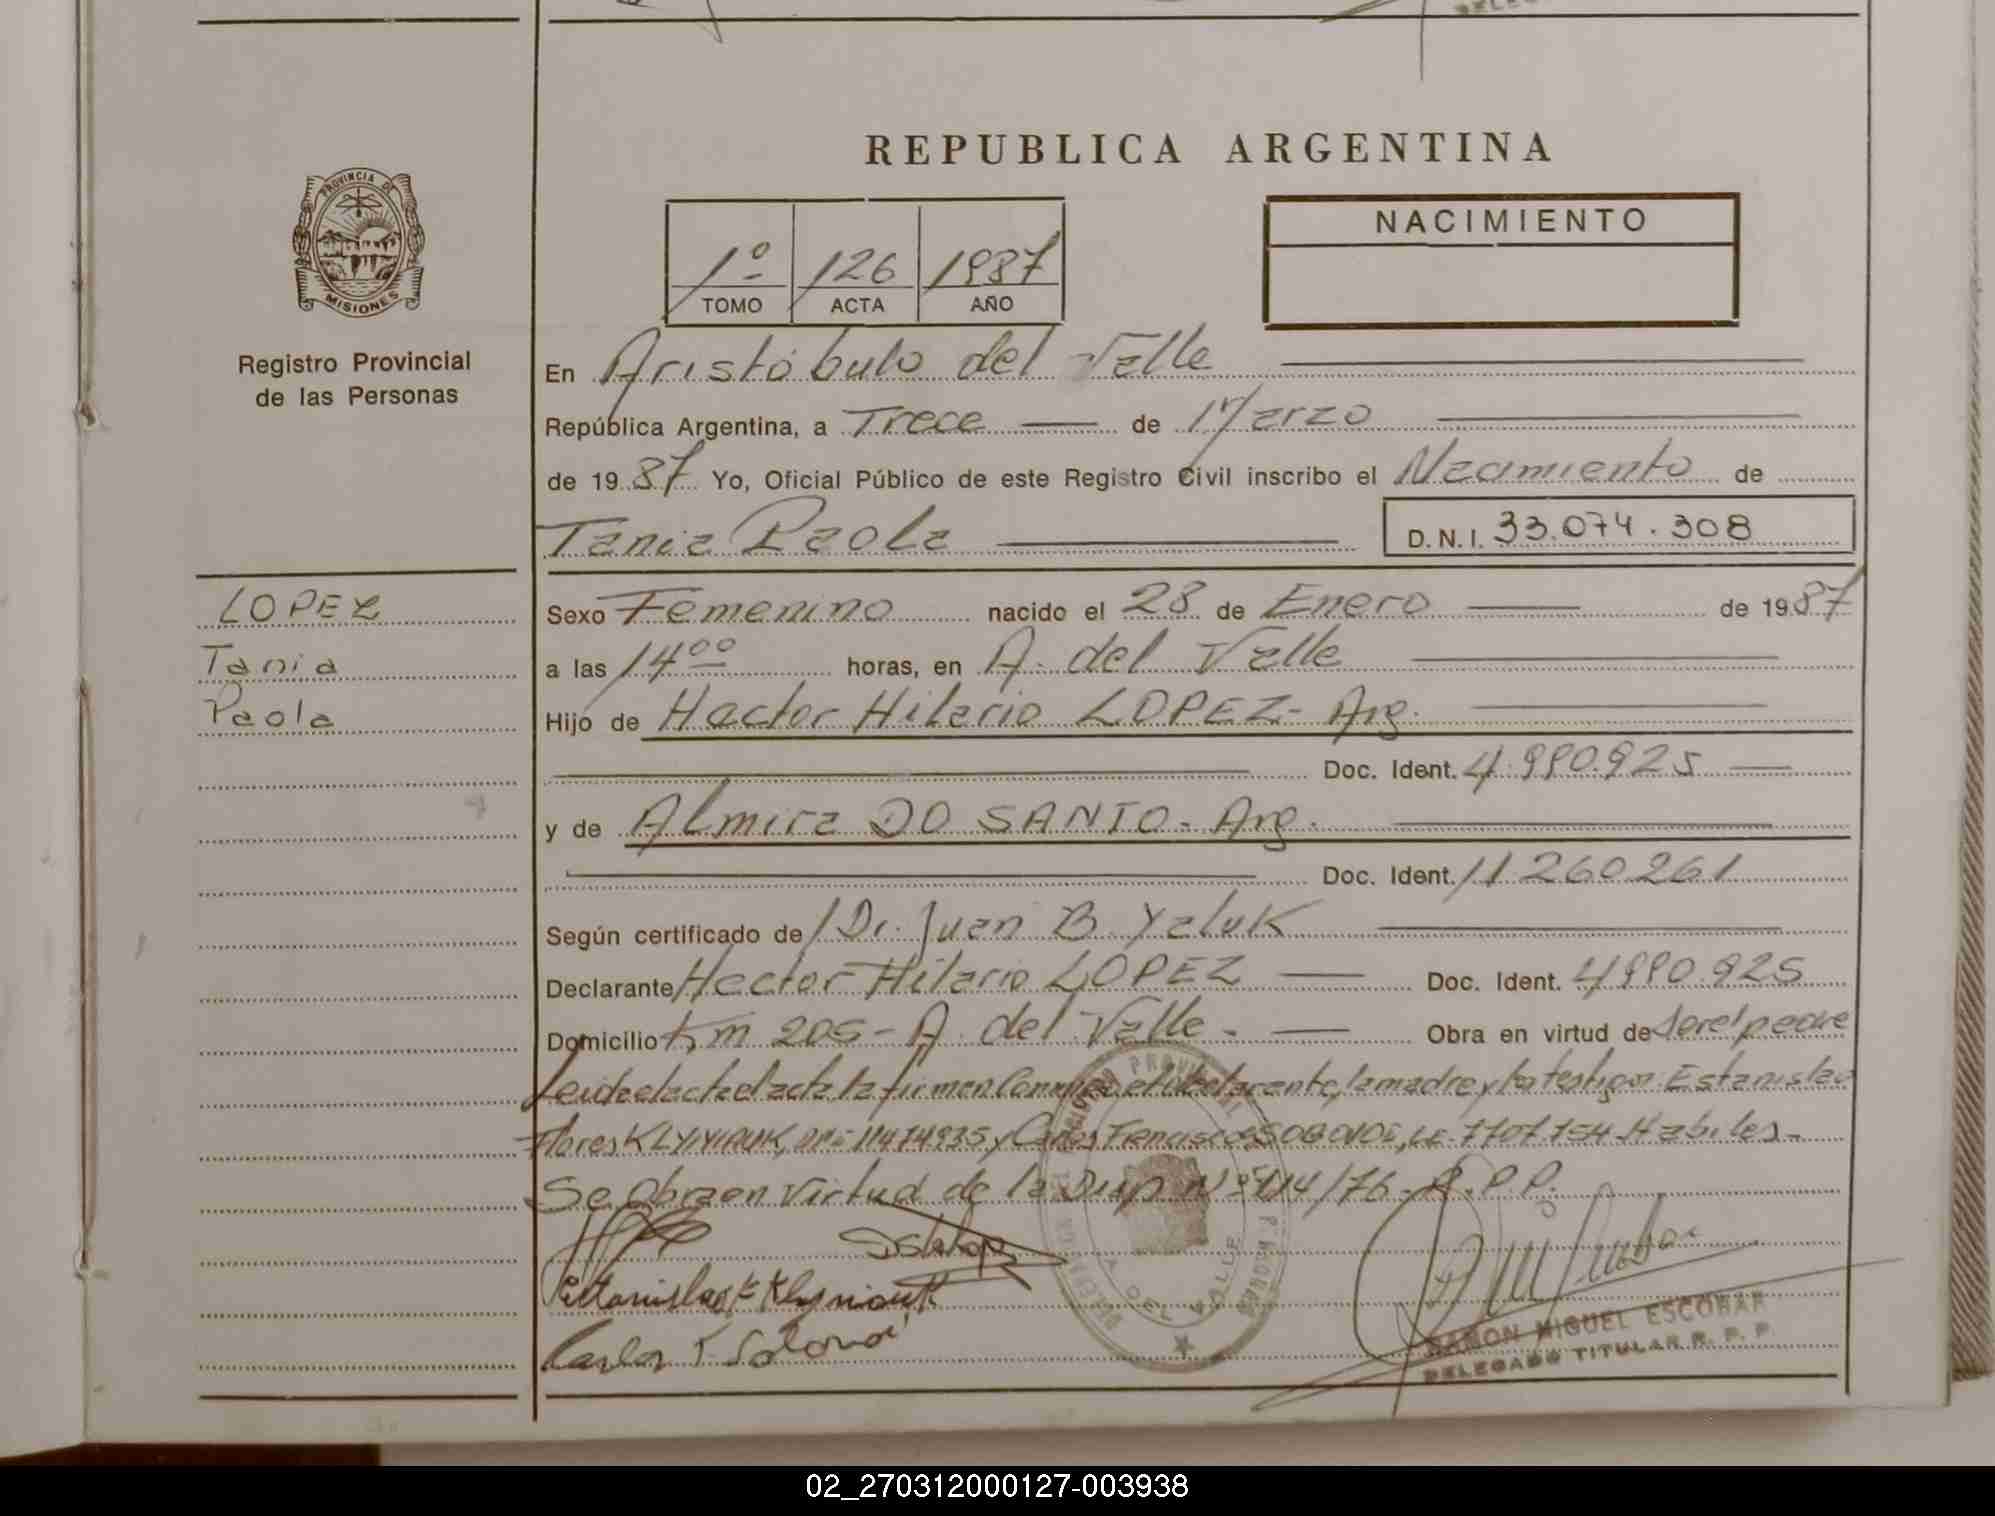 REPUBLICA ARGENTINA
PROVINCIA DE
MISIONES
Registro Provincial
de las Personas
1º 126 1987
TOMO ACTA AÑO
NACIMIENTO
En Aristóbulo del Valle
República Argentina, a Trece de Marzo
de 19 87 Yo, Oficial Público de este Registro Civil inscribo el Nacimiento de
Tania Paola D.N.I. 33.074.308
LOPEZ
Tania
Paola
Sexo Femenino nacido el 28 de Enero de 19 87
a las 14 00 horas, en A. del Valle
Hijo de Hector Hilario LOPEZ - Arg.
Doc. Ident. 4.990.925
y de Almira DO SANTO - Arg.
Doc. Ident. 11.260.261
Según certificado de Dr. Juan B. Yaluk
Declarante Hector Hilario LOPEZ Doc. Ident. 4.990.925
Domicilio Km 205 - A. del Valle - Obra en virtud de ser el padre
Leida el acta la firman Conmigo el declarante, la madre y los testigos Estanislao
Flores 11474935 y Carlos Francisco 7.707.754 Habiles -
Se Obra en Virtud de la Disp. Nº 414/76 - R.P.P.
Carlos F.
A. DEL VALLE
RAMON MIGUEL ESCOBAR
DELEGADO TITULAR R. P. P.
02_270312000127-003938